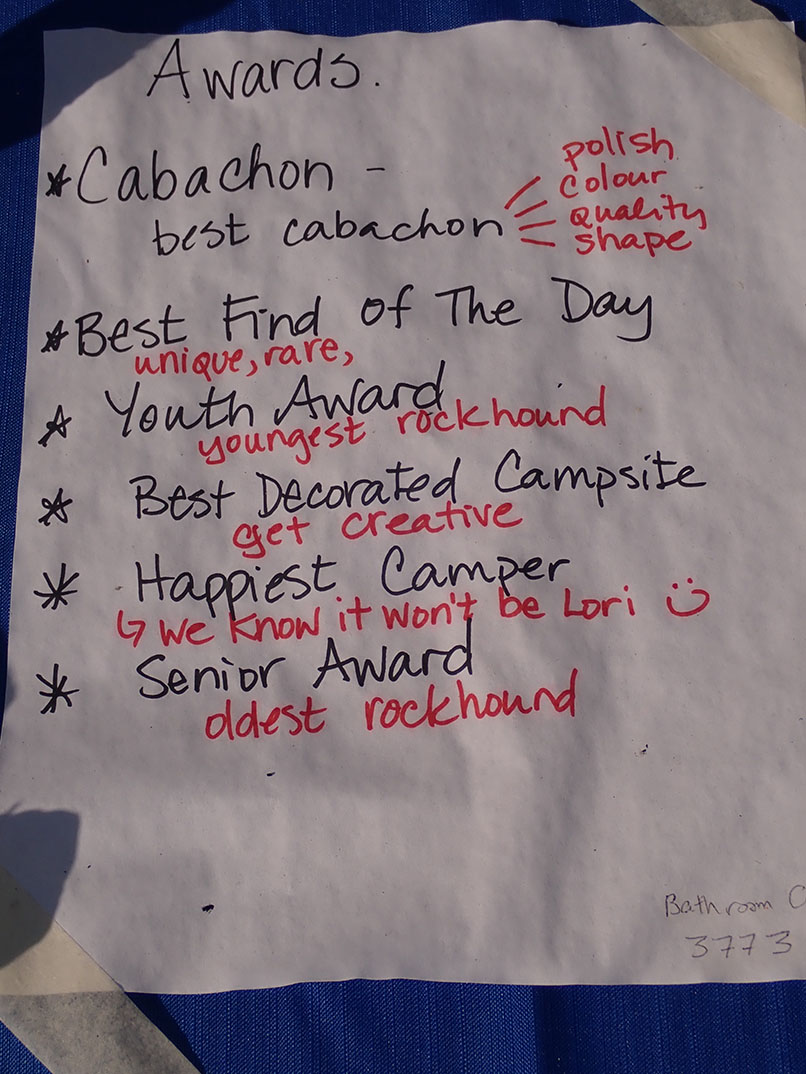 Awards.
*Cabachon -
best cabachon
polish
colour
quality
shape
*Best Find of The Day
unique, rare,
* Youth Award
youngest rockhound
* Best Decorated Campsite
get creative
* Happiest Camper
↳ we know it won't be Lori ☺
* Senior Award
oldest rockhound
Bathroom C
3773